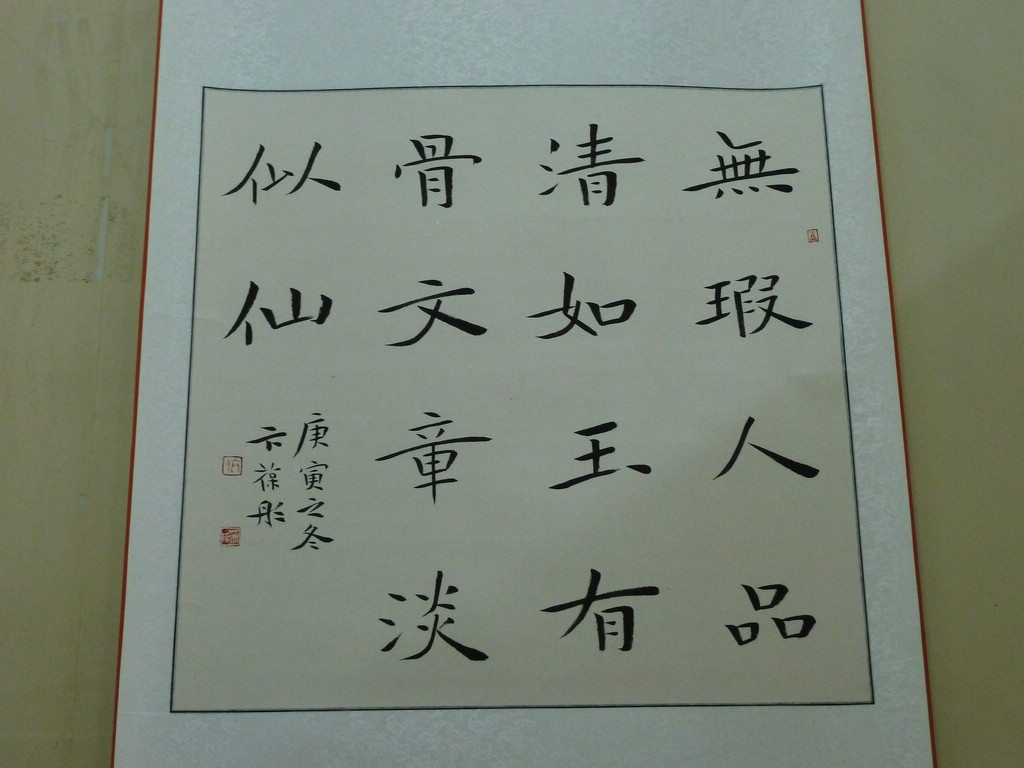 無瑕人品
清如玉有
骨文章淡
似仙
庚寅之冬
卞葆彤